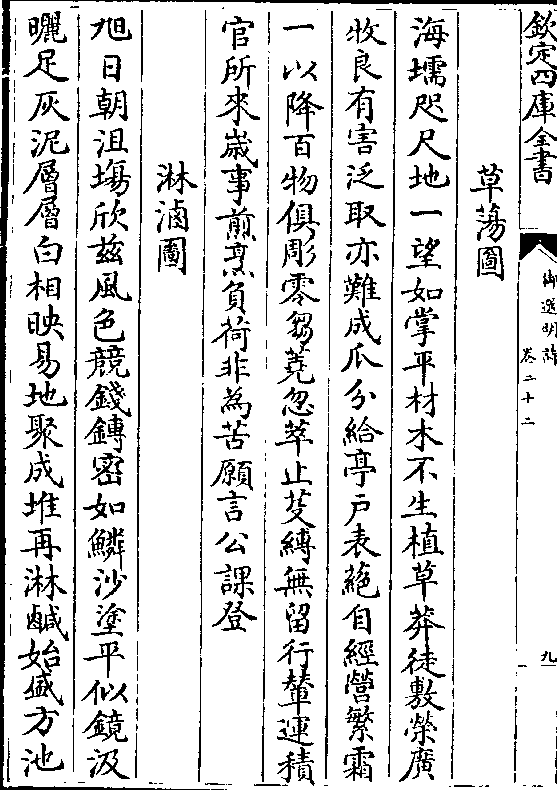 欽定四庫全書
御選明詩
卷二十二
九
草蕩圖
海壖咫尺地一望如掌平材木不生植草莽徒敷榮廣
牧良有害泛取亦難成瓜分給亭戶表蕝自經營繁霜
一以降百物俱彫零芻蕘忽萃止芟縛無留行輦運積
官所來歲事煎烹負荷非為苦願言公課登
淋滷圖
旭日朝沮塲欣兹風色競錢鏄密如鱗沙塗平似鏡汲
曬足灰泥層層白相映易地聚成堆再淋鹹始盛方池